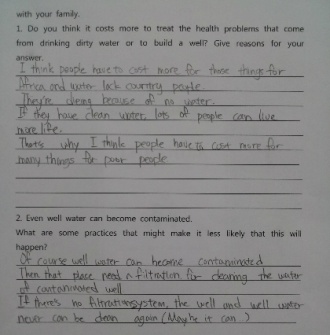 with your family.
1. Do you think it costs more to treat the health problems that come
from drinking dirty water or to build a well? Give reasons for your
answer.
I think people have to cost more for those things for
Africa and water lack country people.
They're dying because of no water.
If they have clean water, lots of people can live
more life.
That's why I think people have to cost more for
many things for poor people
2. Even well water can become contaminated.
What are some practices that might make it less likely that this will
happen?
Of course well water can become contaminated
Then that place need a filtration for cleaning the water
of contaminated well
If there's no filtration system, the well and well water
never can be clean again (Maybe it can)